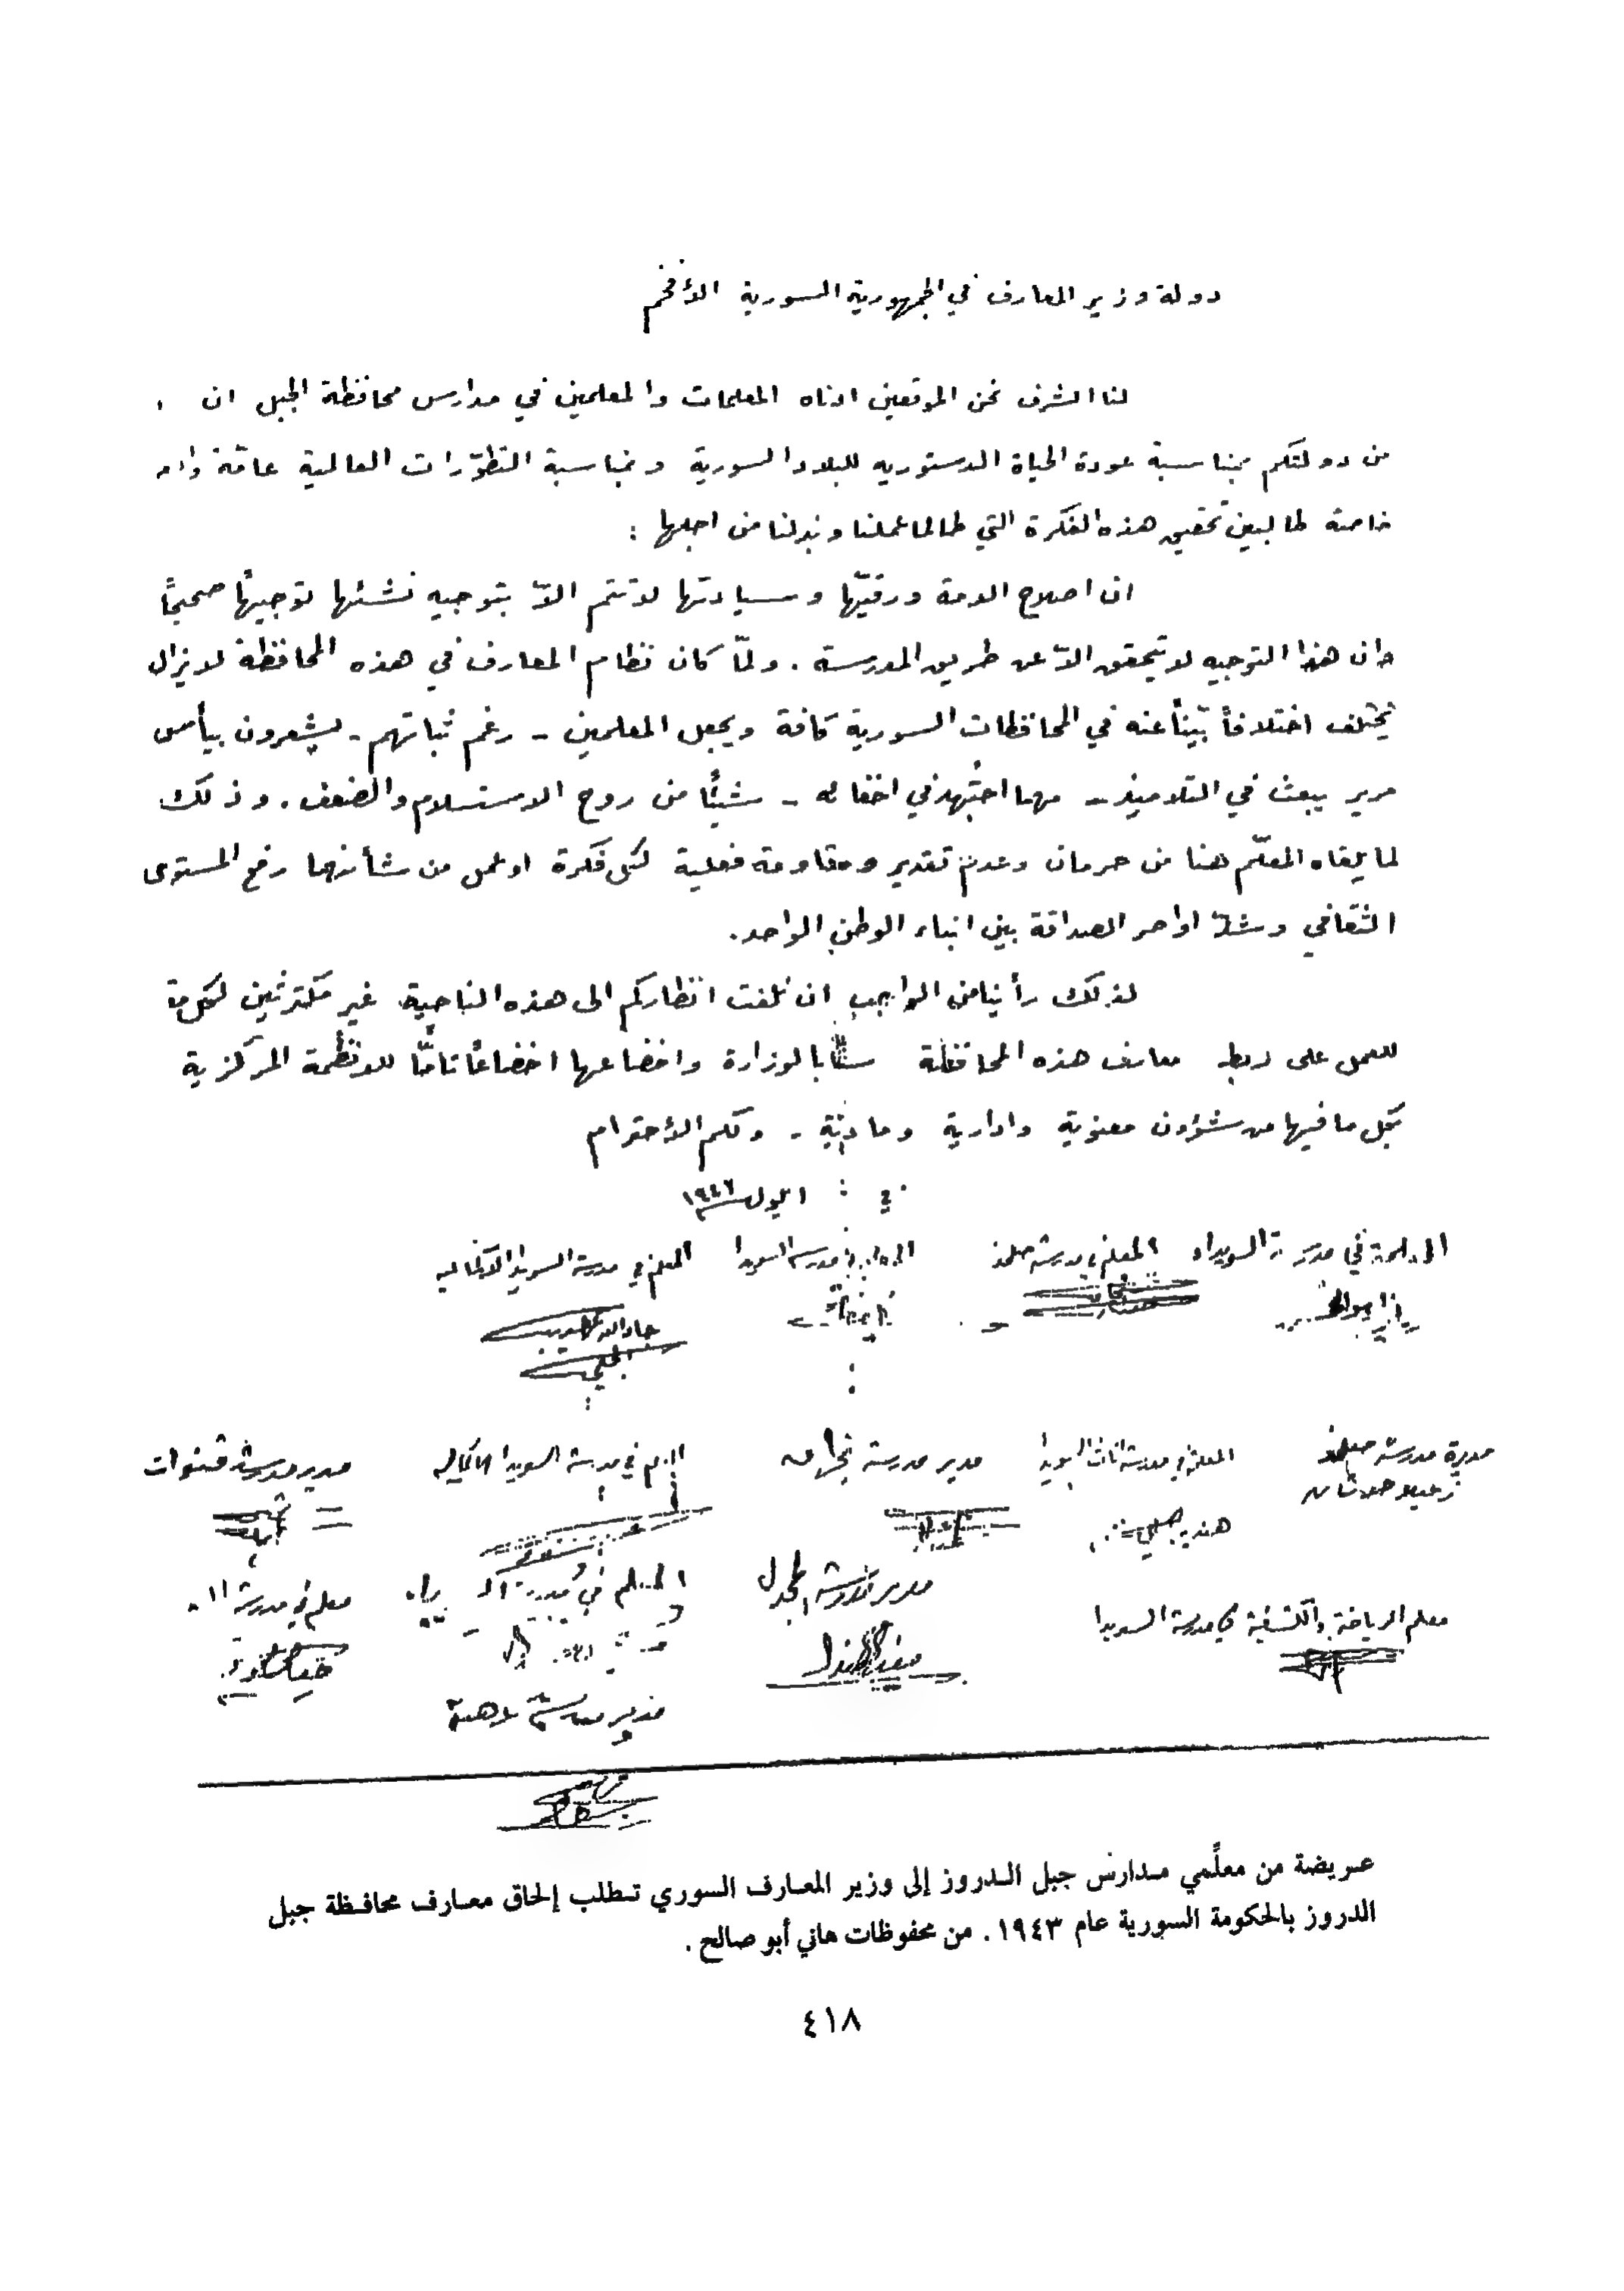 دولة وزير المعارف في الجمهورية السورية الأفخم
لنا الشرف نحن الموقعين ادناه المعلمات والمعلمين في مدارس محافظة الجبل ان
من دولتكم بمناسبة عودة الحياة الدستوريه للبلاد السورية وبمناسبة التطوّرات العالمية عامّة
خاصة طالبين تحقيق هذه الفكرة التي طالما عملنا وبذلنا من اجلها :
ان اصلاح الامة ورقيّها وسيادتها لا تتم الاّ بتوجيه نشئها توجيهًا صحيحًا
وان هذا التوجيه لا يتحقق الاّ عن طريق المدرسة . ولمّا كان نظام المعارف في هذه المحافظة لا يزال
يختلف اختلافاً بيّناً عنه في المحافظات السورية كافة ويجعل المعلمين - رغم ثباتهم - يشعرون بيأس
مرير يبعث في التلاميذ - مهما اجتُهد في اخفائه - شيئًا من روح الاستسلام والضعف . وذلك
لما يلقاه المعلّم هنا من حرمان وعدم تقدير ومقاومة فعلية لكل فكرة او عمل من شأنهما رفع المستوى
الثقافي وشدّ اواصر الصداقة بين ابناء الوطن الواحد .
لذلك رأينا من الواجب ان نلفت انظاركم الى هذه الناحية غير مكترثين
للعمل على ربط معارف هذه المحافظة بالوزارة واخضاعها اخضاعًا تامًّا للانظمة المركزية
بكل ما فيها من شؤون معنوية وادارية ومادية - ولكم الأحترام
في : ايلول
المعلمة في مدرسة السويداء المعلم في مدرسة صلخد في مدرسة السويدا المعلم في مدرسة السويدا الاكماليه
جاد الله
الحلبي
مديرة مدرسة صلخد المعلمة في مدرسة اناث السويدا مدير مدرسة نجران في مدرسة السويدا الاكماليه مدير مدرسة قنوات
هند
معلم الرياضة والكشفية في مدرسة السويدا مدير مدرسة المجدل المعلم في مدرسة معلم في مدرسة
مدير مدرسة
عريضة من معلّمي مدارس جبل الدروز إلى وزير المعارف السوري تطلب إلحاق معارف محافظة جبل
الدروز بالحكومة السورية عام ١٩٤٣ . من محفوظات هاني أبو صالح .
٤١٨